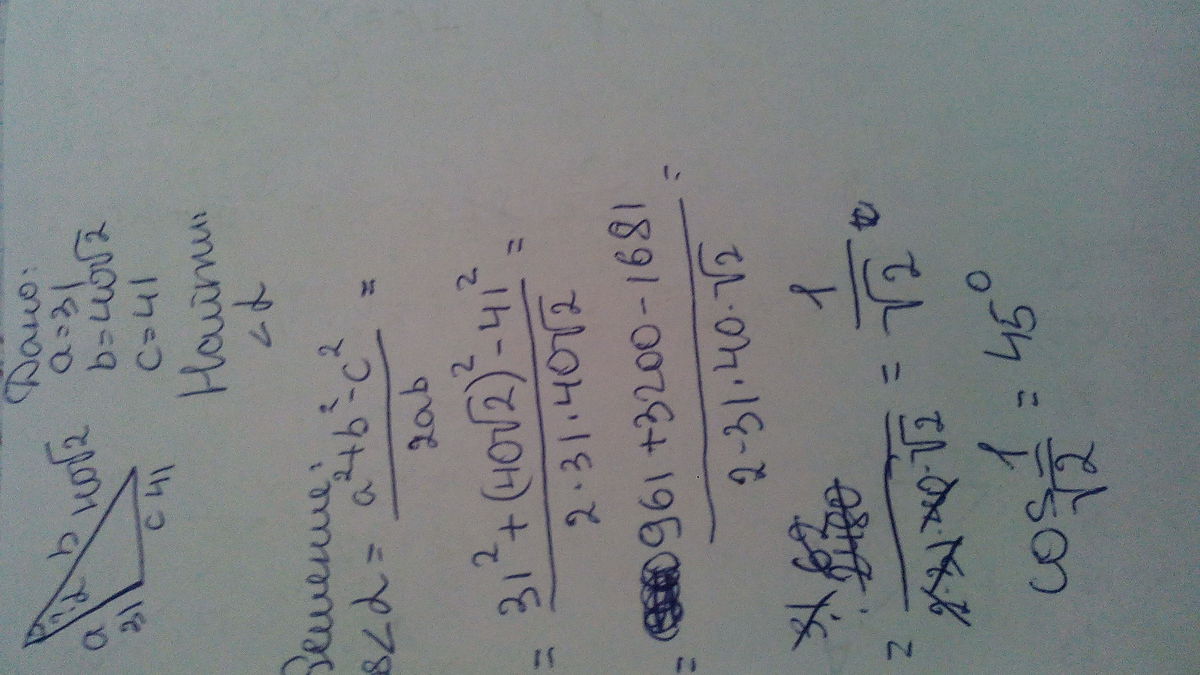 Дано:
a=31
b=40√2
c=41
Найти:
<α
a
31
?α
b 40√2
c 41
Решение:
s<α = a²+b²-c² / 2ab =
= 31²+(40√2)²-41² / 2·31·40√2 =
= 961+3200-1681 / 2·31·40·√2 =
= 2480 / 2·31·40·√2 = 1/√2
cos 1/√2 = 45°